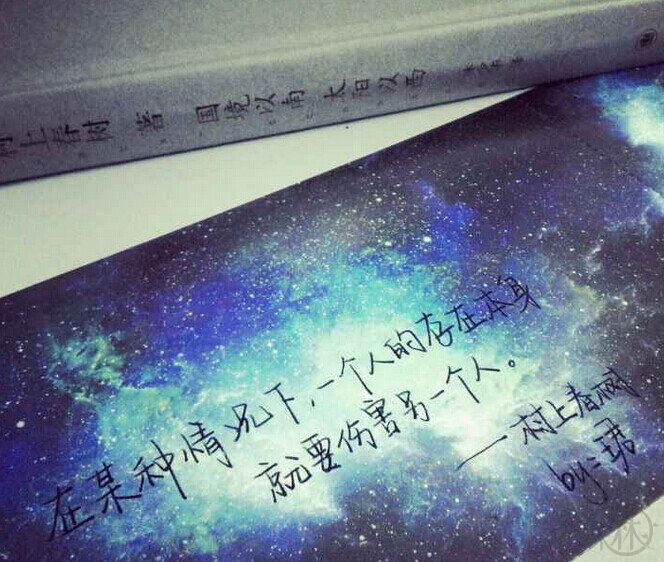 村上春树 著 国境以南 太阳以西
在某种情况下,一个人的存在本身
就要伤害另一个人。
—村上春树
by:珺